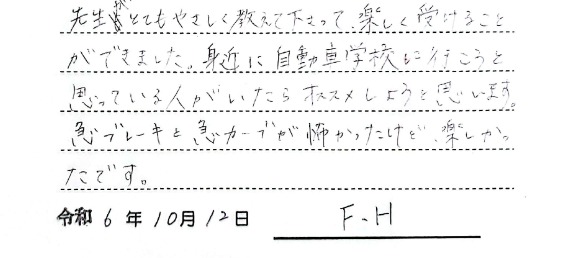 先生がとてもやさしく教えて下さって、楽しく受けること
ができました。身近に自動車学校に行こうと
思っている人がいたらオススメしようと思います。
急ブレーキと急カーブが怖かったけど、楽しかっ
たです。
令和 6 年 10月 12日 F.H